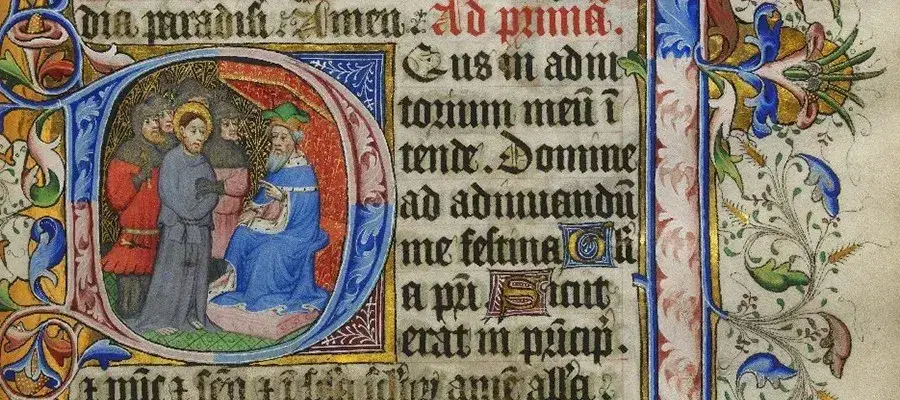 dia paradisi. Amen. Ad primā.
DEus in adiu
torium meū ī
tende. Domine
ad adiuuandū
me festina
a pri. Sicut
erat in prīcip.
⁊ nūc ⁊ ⁊ ī amē